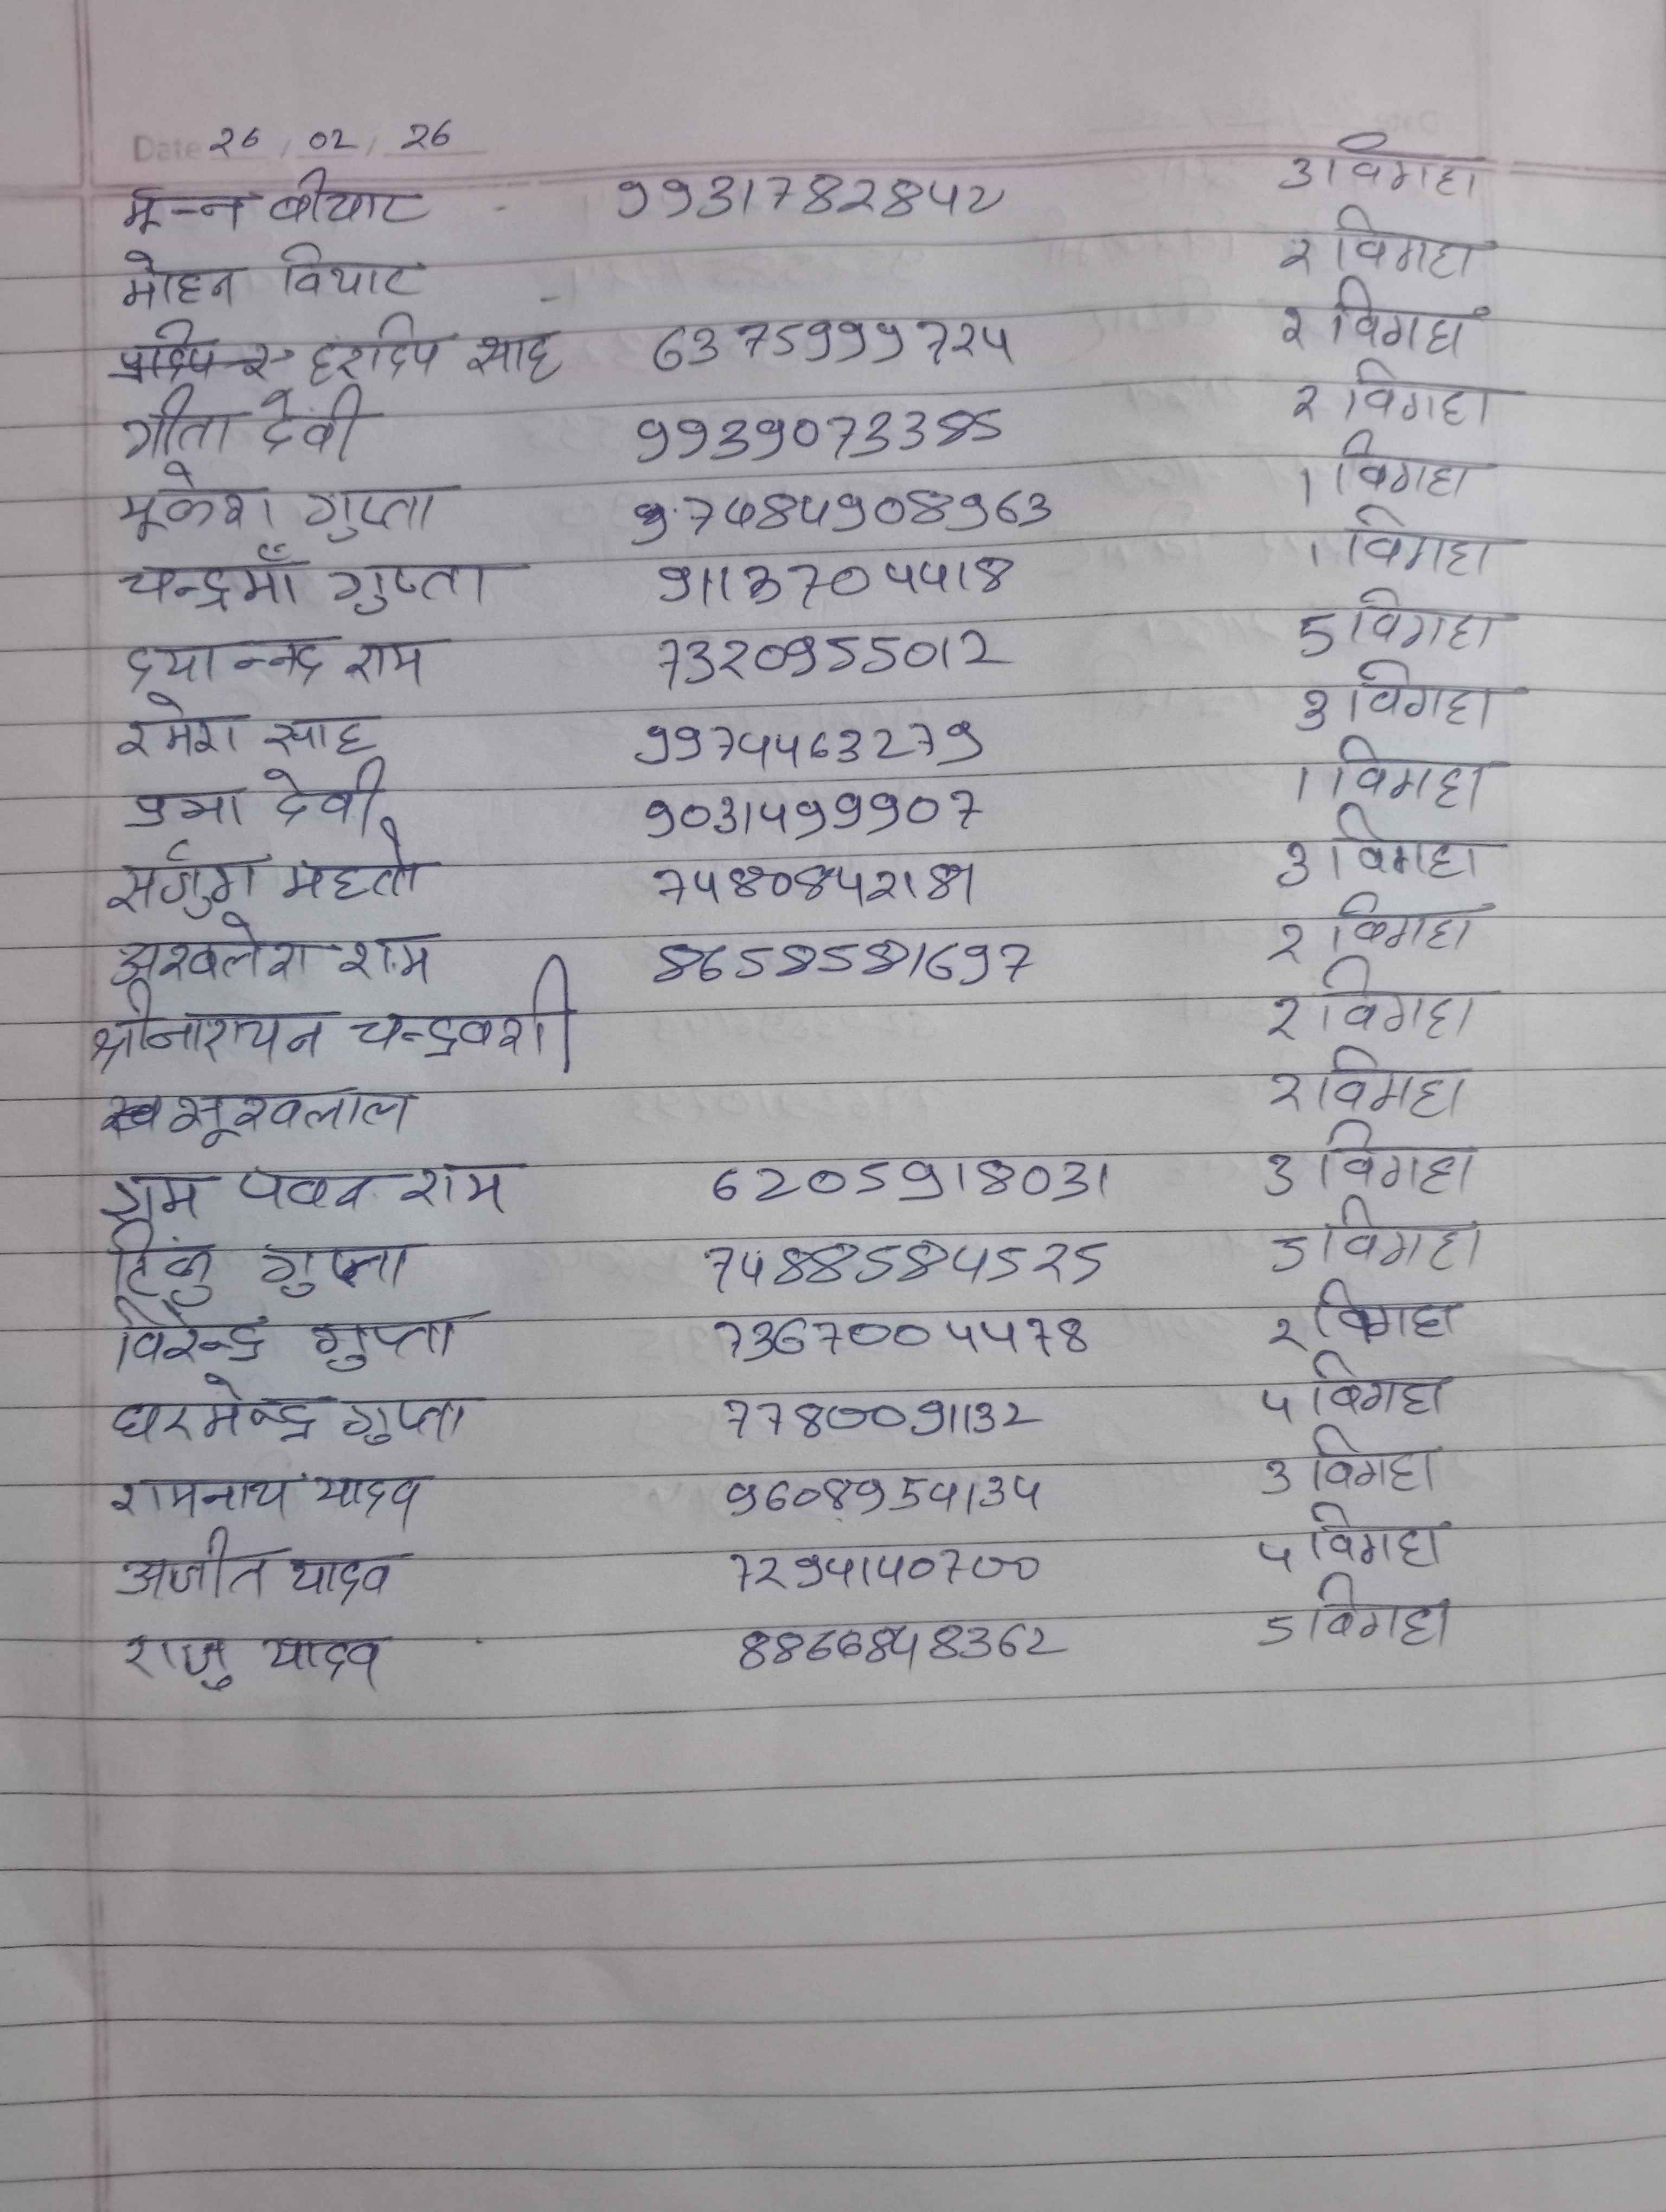 Date 26 / 02 / 26
मून्न बीयार 9931782842 3 विगहा
मोहन वियार 2 विगहा
हरदिप साह 6375999724 2 विगहा
गीता देवी 9939073385 2 विगहा
मूकेश गुप्ता 1 विगहा
चन्द्रमाँ गुप्ता 9113704418 1 विगहा
दयानन्द राम 7320955012 5 विगहा
रमेश साह 9974463279 3 विगहा
देवी 9031499907 1 विगहा
महतो 3 विगहा
अखलेश राम 8658581697 2 विगहा
श्रीनारायन चन्द्रवशी 2 विगहा
सूखलाल 2 विगहा
राम 6205918031 3 विगहा
गुप्ता 7488584525 5 विगहा
विरेन्द्र गुप्ता 7367004478 2 विगहा
धरमेन्द्र गुप्ता 7780091132 4 विगहा
रामनाथ यादव 9608954134 3 विगहा
अजीत यादव 7294140700 4 विगहा
राजु यादव 8866848362 5 विगहा